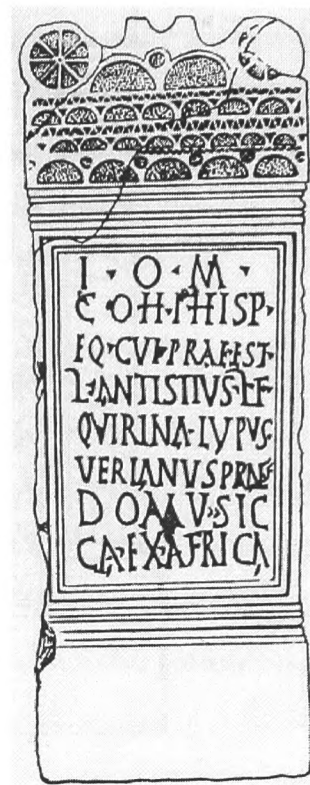 I · O · M ·
COH·I·HISP·
EQ·CVI·PRAEEST·
L·ANTISTIVS·L·F·
QVIRINA·LVPVS·
VERIANVS PRAEF
DOMV·SIC
CA·EX·AFRICA